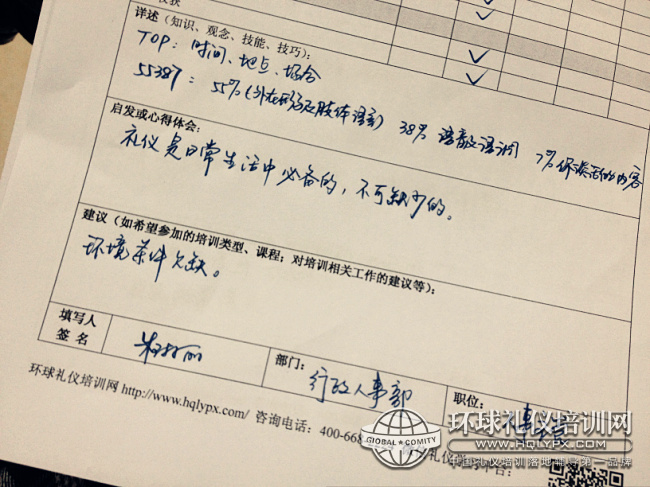 收获
详述（知识、观念、技能、技巧）：
TOP：时间、地点、场合
55387：55%（外在形象及肢体语言） 38% 语音语调 7% 你谈话的内容
启发或心得体会：
礼仪是日常生活中必备的，不可缺少的。
建议（如希望参加的培训类型、课程；对培训相关工作的建议等）：
环境条件欠缺。
填写人
签名
部门：
行政人事部
职位：
环球礼仪培训网 http://www.hqlypx.com/ 咨询电话：400-668
环球礼仪培训网
WWW.HQLYPX.COM
GLOBAL COMITY
中国礼仪培训落地第一品牌